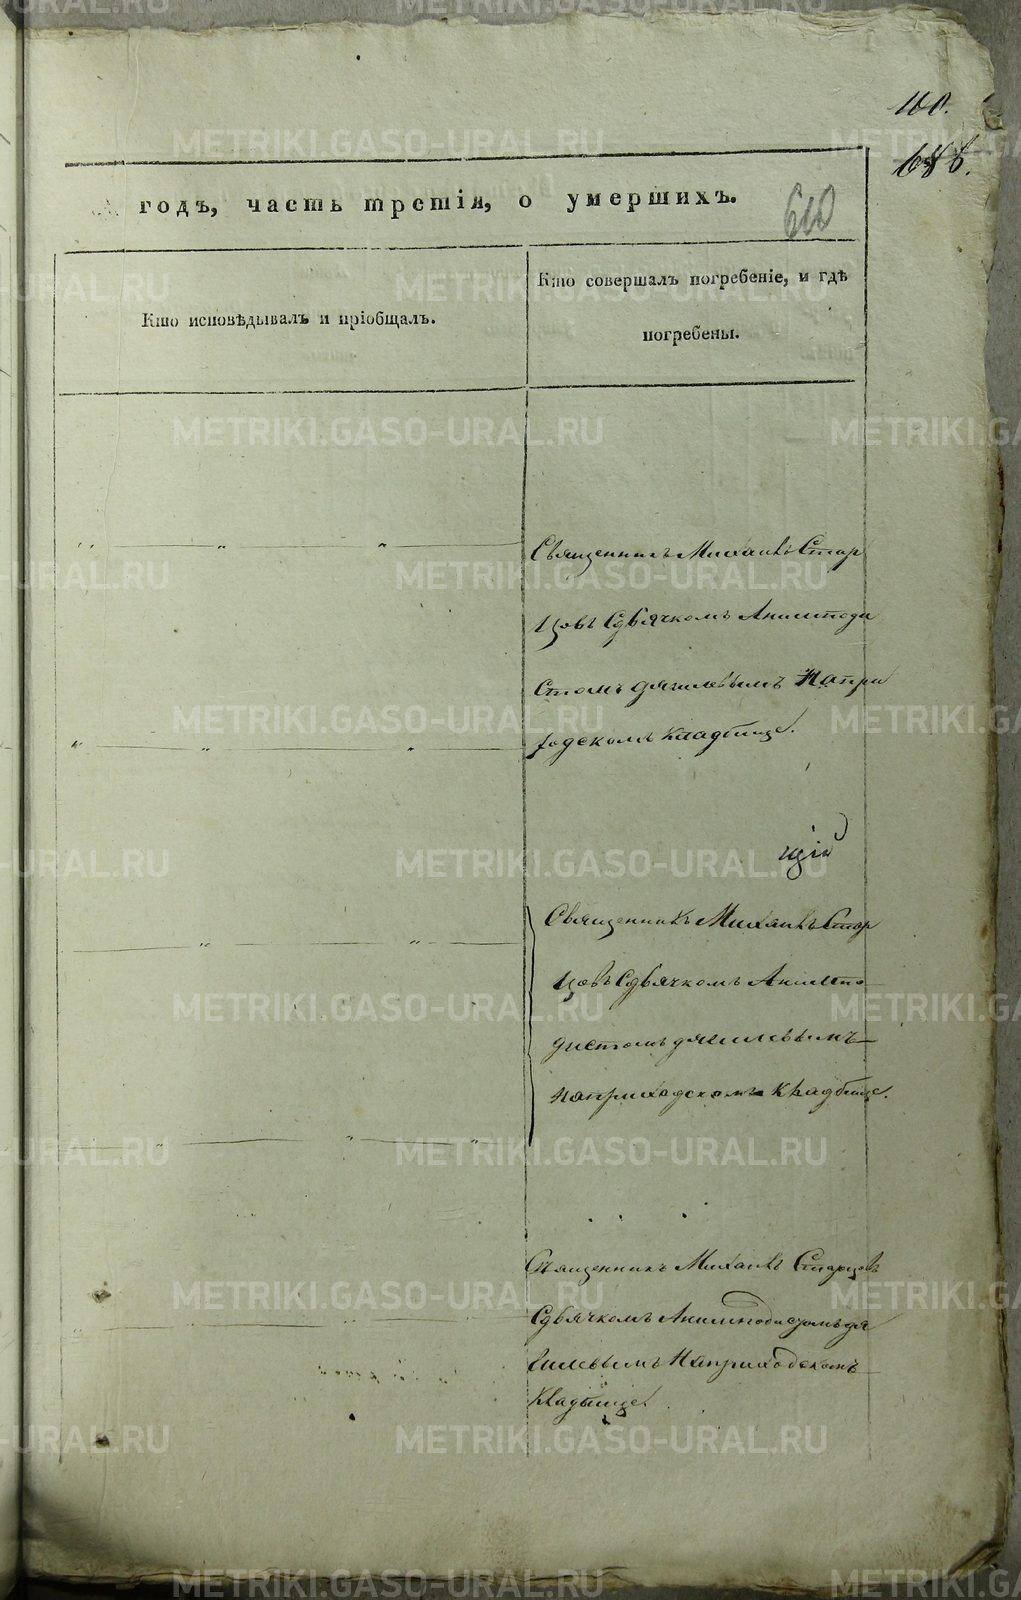 110.
686.
годъ, часть третія, о умершихъ.
610
Кто исповѣдывалъ и пріобщалъ.
Кто совершалъ погребеніе, и гдѣ
погребены.
Священникъ Михаилъ Стар
цовъ Сдьячкомъ Анемподи
стомъ дягилевымъ Напри
ходскомъ кладбище.
щій
Священникъ Михаилъ Стар
цовъ Сдьячкомъ Анемпо
дистомъ дягилевымъ
наприходскомъ кладбище.
Священникъ Михаилъ Старцовъ
Сдьячкомъ Анемподистомъ дя
гилевымъ Наприходскомъ
кладбище.
METRIKI.GASO-URAL.RU